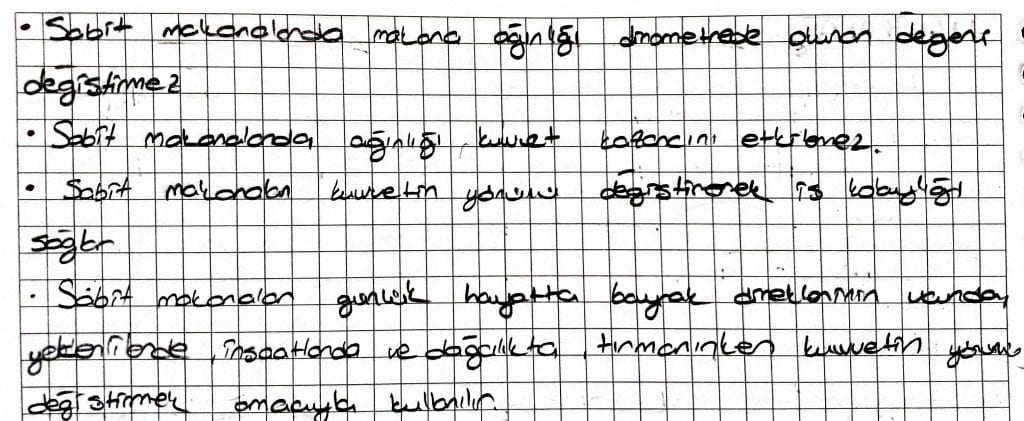 • Sabit makaralarda makara ağırlığı dinometrede okunan değeri
değiştirmez
• Sabit makaralarda ağırlığı, kuvvet kazancını etkilemez.
• Sabit makaralar kuvvetin yönünü değiştirerek iş kolaylığı
sağlar
• Sabit makaralar günlük hayatta bayrak direklerinin
yelkenlilerde, inşaatlarda ve dağcılıkta, tırmanırken kuvvetin yönünü
değiştirmek amacıyla kullanılır.